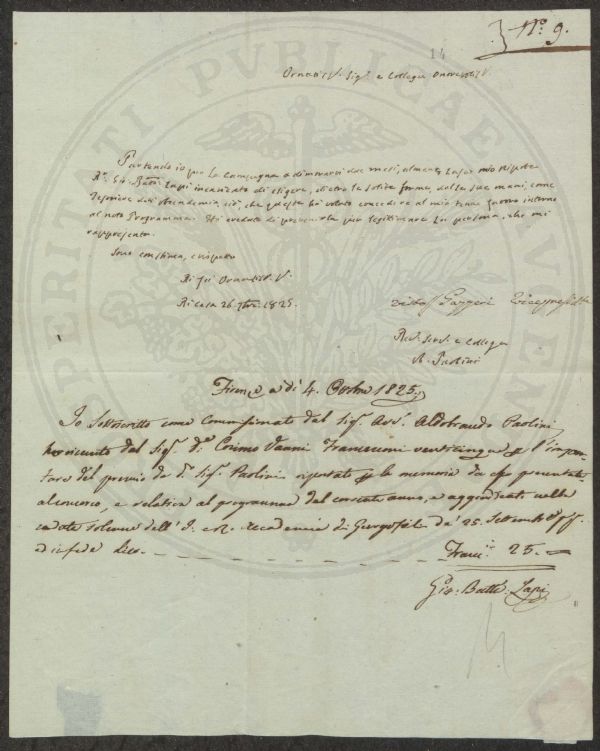 N.° 9.
14
Ornatis.° Sig.r e Collega Onoratis.°
Partendo io per la Campagna a dimorarci due mesi, almeno, lascio mio nipote
Gio. Batta Lapi incaricato di esigere, dietro le solite forme, dalle sue mani, come
Tesoriere dell'Accademia, ciò, che questa ha voluto concedere al mio tenue lavoro intorno
al noto Programma. Ho creduto di prevenirla per legittimare la persona, che mi
rappresenta.
Sono con stima, e rispetto
Di Lei Ornatis.° S.
Di Casa 26 7bre 1825.
visto Gazzeri Vicepresid.
Dev. Serv. e Collega
A. Paolini
Firenze a dì 4. Ottobre 1825.
Io Sottoscritto come Commissionato dal Sig. Avv. Aldobrando Paolini
ho ricevuto dal Sig. D. Cosimo Vanni Francesconi venticinque p. l'impor-
tare del premio da d. Sig. Paolini riportato p. la memoria da esso presentata
al concorso, e relativa al programma del corrente anno, e aggiudicato nella
seduta solenne dell'I. e R. Accademia dei Georgofili de' 25. Settembre pp.
e in fede dico. Franc.i 25.
Gio. Batta Lapi
PERITATI PUBLICAE